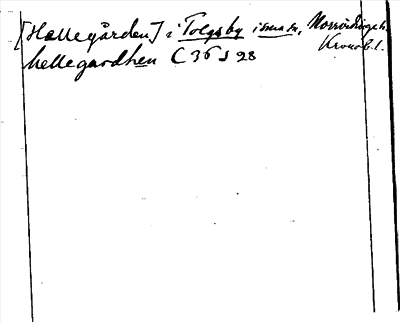 [Hallegården] i Tolgsby ismas, Norrvidinge h.
Kronob. l.
hellegardhen C 36 s 28